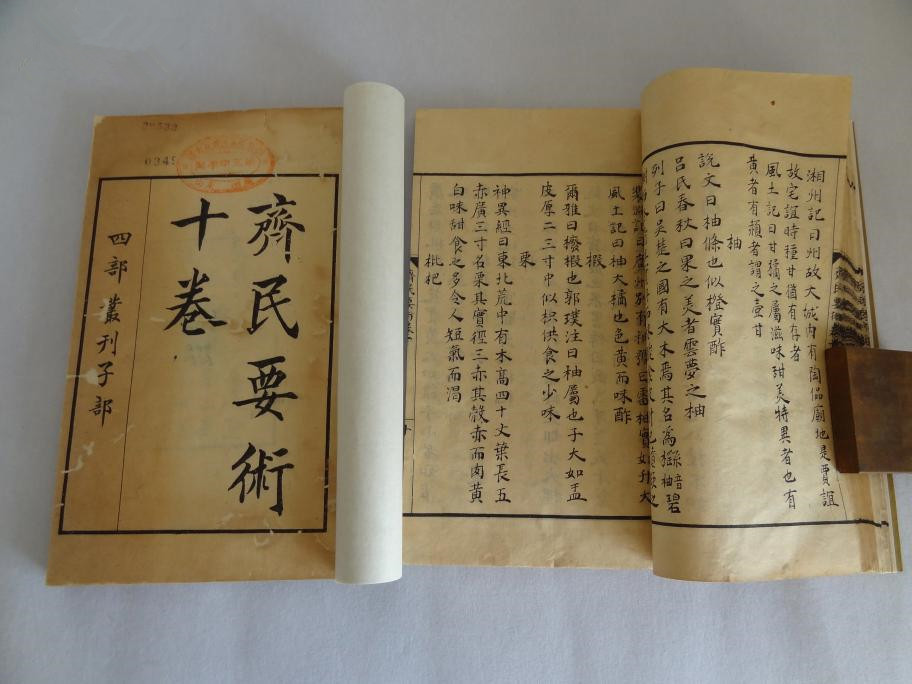 齊民要術
十卷
四部叢刊子部
0349
湘州記曰州故大城内有陶侃廟地是賈誼
故宅誼時種甘猶有存者
風土記曰甘橘之屬滋味甜美特異者也有
黄者有赬者謂之壷甘
柚
說文曰柚條也似橙實酢
吕氏春秋曰果之美者雲夢之柚
列子曰吳楚之國有大木焉其名為櫾音柚碧
風土記曰柚大橘也色黄而味酢
椵
爾雅曰櫠椵也郭璞注曰柚屬也子大如盂
皮厚二三寸中似枳供食之少味
栗
神異經曰東北荒中有木高四十丈葉長五
赤廣三寸名栗其實徑三赤其殼赤而肉黄
白味甜食之多令人短氣而渴
枇杷